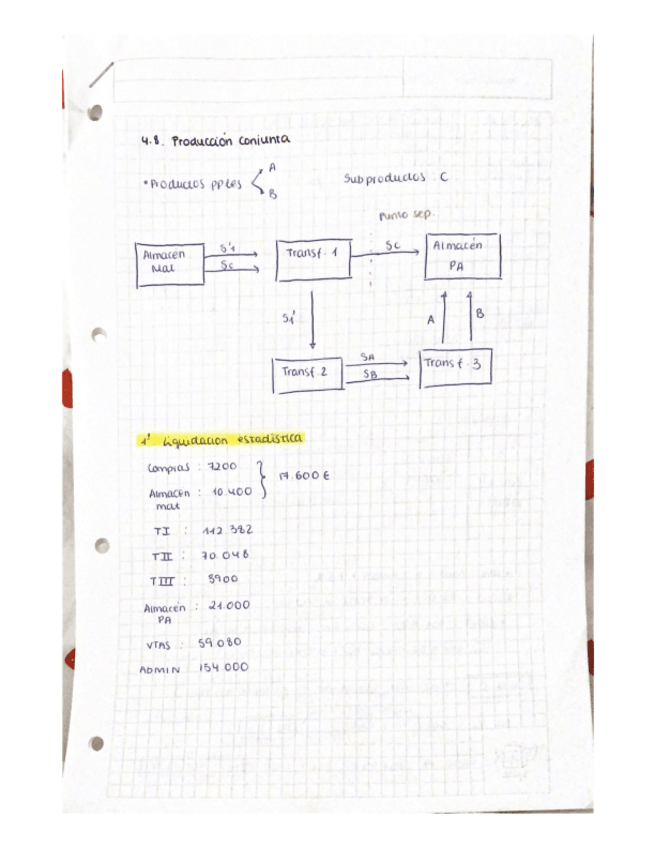 4.8. Producción Conjunta
• Productos pples A B
Subproductos C
Punto sep.
Almacén Mat
S1
Sc
Transf. 1
Sc
Almacén PA
S1'
A
B
Transf. 2
SA
SB
Transf. 3
1º Liquidacion estadística
Compras : 7200
17.600 €
Almacén : 10.400
mat
TI : 112.382
TII : 70.048
TIII : 8900
Almacén : 21.000
PA
VTAS : 59.080
ADMIN 154.000